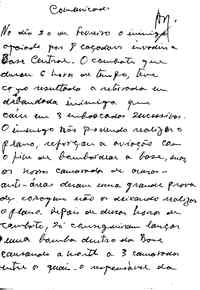 Comunicado
No dia 20 de fevereiro o inimigo
apoiado por 8 caçadores invadiu a
Base Central. O combate que
durou 6 horas de tempo, teve
como resultado a retirada em
debandada inimiga que
caiu em 3 emboscadas sucessivas.
O inimigo não podendo realizar o
plano, reforçou a aviação com
o fim de bombardear a base, mas
os nossos camaradas de
anti-aérea deram uma grande prova
de coragem não os deixando realizar
o plano. Depois de duas horas de
combate, só conseguiram lançar
uma bomba dentro da Base
causando a morte a 3 camaradas
entre os quais o responsável da